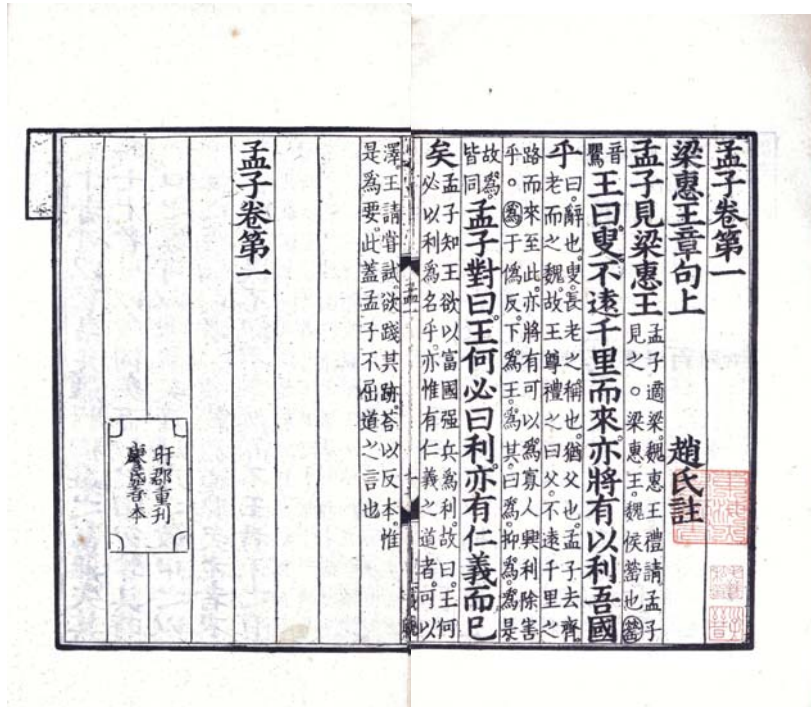 孟子卷第一
梁惠王章句上 趙氏註
孟子見梁惠王
孟子適梁魏惠王禮請孟子
見之○梁惠王魏侯罃也罃
音
罌
王曰叟不遠千里而來亦將有以利吾國
乎
曰辭也叟長老之稱也猶父也孟子去齊
老而之魏故王尊禮之曰父不遠千里之
路而來至此亦將有可以爲寡人興利除害
乎○爲于僞反下爲王爲其曰爲抑爲爲是
故爲
皆同
孟子對曰王何必曰利亦有仁義而已
矣
孟子知王欲以富國强兵爲利故曰王何
必以利爲名乎亦惟有仁義之道者可以
孟一
澤王請嘗試欲踐其跡荅以反本惟
是爲要此蓋孟子不屈道之言也
孟子卷第一
盱郡重刊
廖氏善本